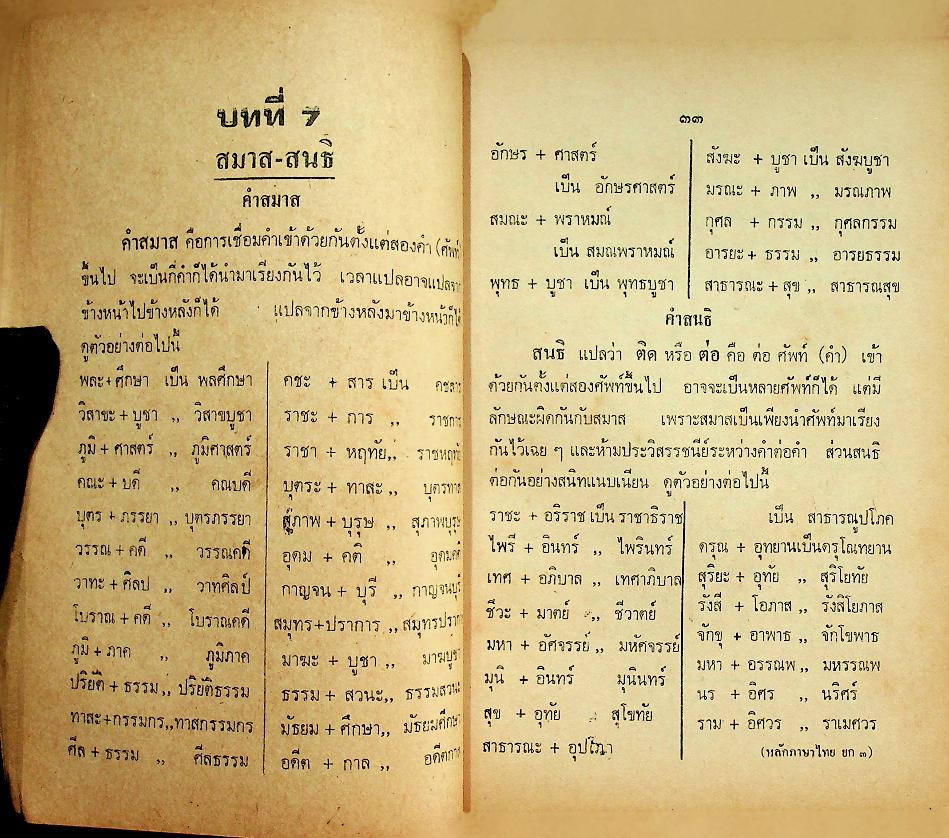 บทที่ 7
สมาส-สนธิ
คำสมาส
คำสมาส คือการเชื่อมคำเข้าด้วยกันตั้งแต่สองคำ (ศัพท์
ขึ้นไป จะเป็นกี่คำก็ได้นำมาเรียงกันไว้ เวลาแปลอาจแปลจาก
ข้างหน้าไปข้างหลังก็ได้ แปลจากข้างหลังมาข้างหน้าก็ได้
ดูตัวอย่างต่อไปนี้
พละ+ศึกษา เป็น พลศึกษา
วิสาขะ+บูชา ,, วิสาขบูชา
ภูมิ+ศาสตร์ ,, ภูมิศาสตร์
คณะ+บดี ,, คณบดี
บุตร+ภรรยา ,, บุตรภรรยา
วรรณ+คดี ,, วรรณคดี
วาทะ+ศิลป ,, วาทศิลป์
โบราณ+คดี ,, โบราณคดี
ภูมิ+ภาค ,, ภูมิภาค
ปริยัติ+ธรรม,, ปริยัติธรรม
ทาสะ+กรรมกร,,ทาสกรรมกร
ศีล+ธรรม ,, ศีลธรรม
คชะ + สาร เป็น คชสาร
ราชะ + การ ,, ราชการ
ราชา + หฤทัย,, ราชหฤทัย
บุตระ + ทาสะ ,, บุตรทาส
สุภาพ + บุรุษ ,, สุภาพบุรุษ
อุดม + คติ ,, อุดมคติ
กาญจน + บุรี ,, กาญจนบุรี
สมุทร+ปราการ ,,สมุทรปราการ
มาฆะ + บูชา ,, มาฆบูชา
ธรรม + สวนะ,, ธรรมสวนะ
มัธยม + ศึกษา,, มัธยมศึกษา
อดีต + กาล ,, อดีตกาล
๓๓
อักษร + ศาสตร์
เป็น อักษรศาสตร์
สมณะ + พราหมณ์
เป็น สมณพราหมณ์
พุทธ + บูชา เป็น พุทธบูชา
สังฆะ + บูชา เป็น สังฆบูชา
มรณะ + ภาพ ,, มรณภาพ
กุศล + กรรม ,, กุศลกรรม
อารยะ + ธรรม ,, อารยธรรม
สาธารณะ + สุข ,, สาธารณสุข
คำสนธิ
สนธิ แปลว่า ติด หรือ ต่อ คือ ต่อ ศัพท์ (คำ) เข้า
ด้วยกันตั้งแต่สองศัพท์ขึ้นไป อาจจะเป็นหลายศัพท์ก็ได้ แต่มี
ลักษณะผิดกันกับสมาส เพราะสมาสเป็นเพียงนำศัพท์มาเรียง
กันไว้เฉย ๆ และห้ามประวิสรรชนีย์ระหว่างคำต่อคำ ส่วนสนธิ
ต่อกันอย่างสนิทแนบเนียน ดูตัวอย่างต่อไปนี้
ราชะ + อริราช เป็น ราชาธิราช
ไพรี + อินทร์ ,, ไพรินทร์
เทศ + อภิบาล ,, เทศาภิบาล
ชีวะ + มาตย์ ,, ชีวาตย์
มหา + อัศจรรย์ ,, มหัศจรรย์
มุนิ + อินทร์ มุนินทร์
สุข + อุทัย ,, สุโขทัย
สาธารณะ + อุปโภา
เป็น สาธารณูปโภค
ดรุณ + อุทยานเป็นดรุโณทยาน
สุริยะ + อุทัย ,, สุริโยทัย
รังสี + โอภาส ,, รังสิโยภาส
จักขุ + อาพาธ ,, จักโขพาธ
มหา + อรรณพ ,, มหรรณพ
นร + อิศร ,, นริศร์
ราม + อิศวร ,, ราเมศวร
(หลักภาษาไทย ยก ๓)